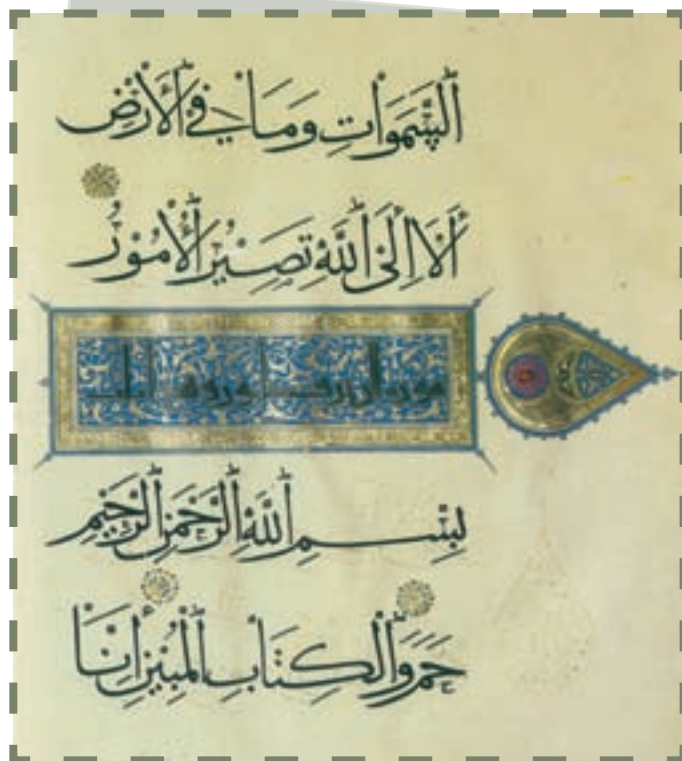 ٱلسَّمَوَاتِ وَمَا فِي ٱلْأَرْضِ
أَلَا إِلَى ٱللَّهِ تَصِيرُ ٱلْأُمُورُ
بِسْمِ ٱللَّهِ ٱلرَّحْمَنِ ٱلرَّحِيمِ
حم وَٱلْكِتَابِ ٱلْمُبِينِ إِنَّا